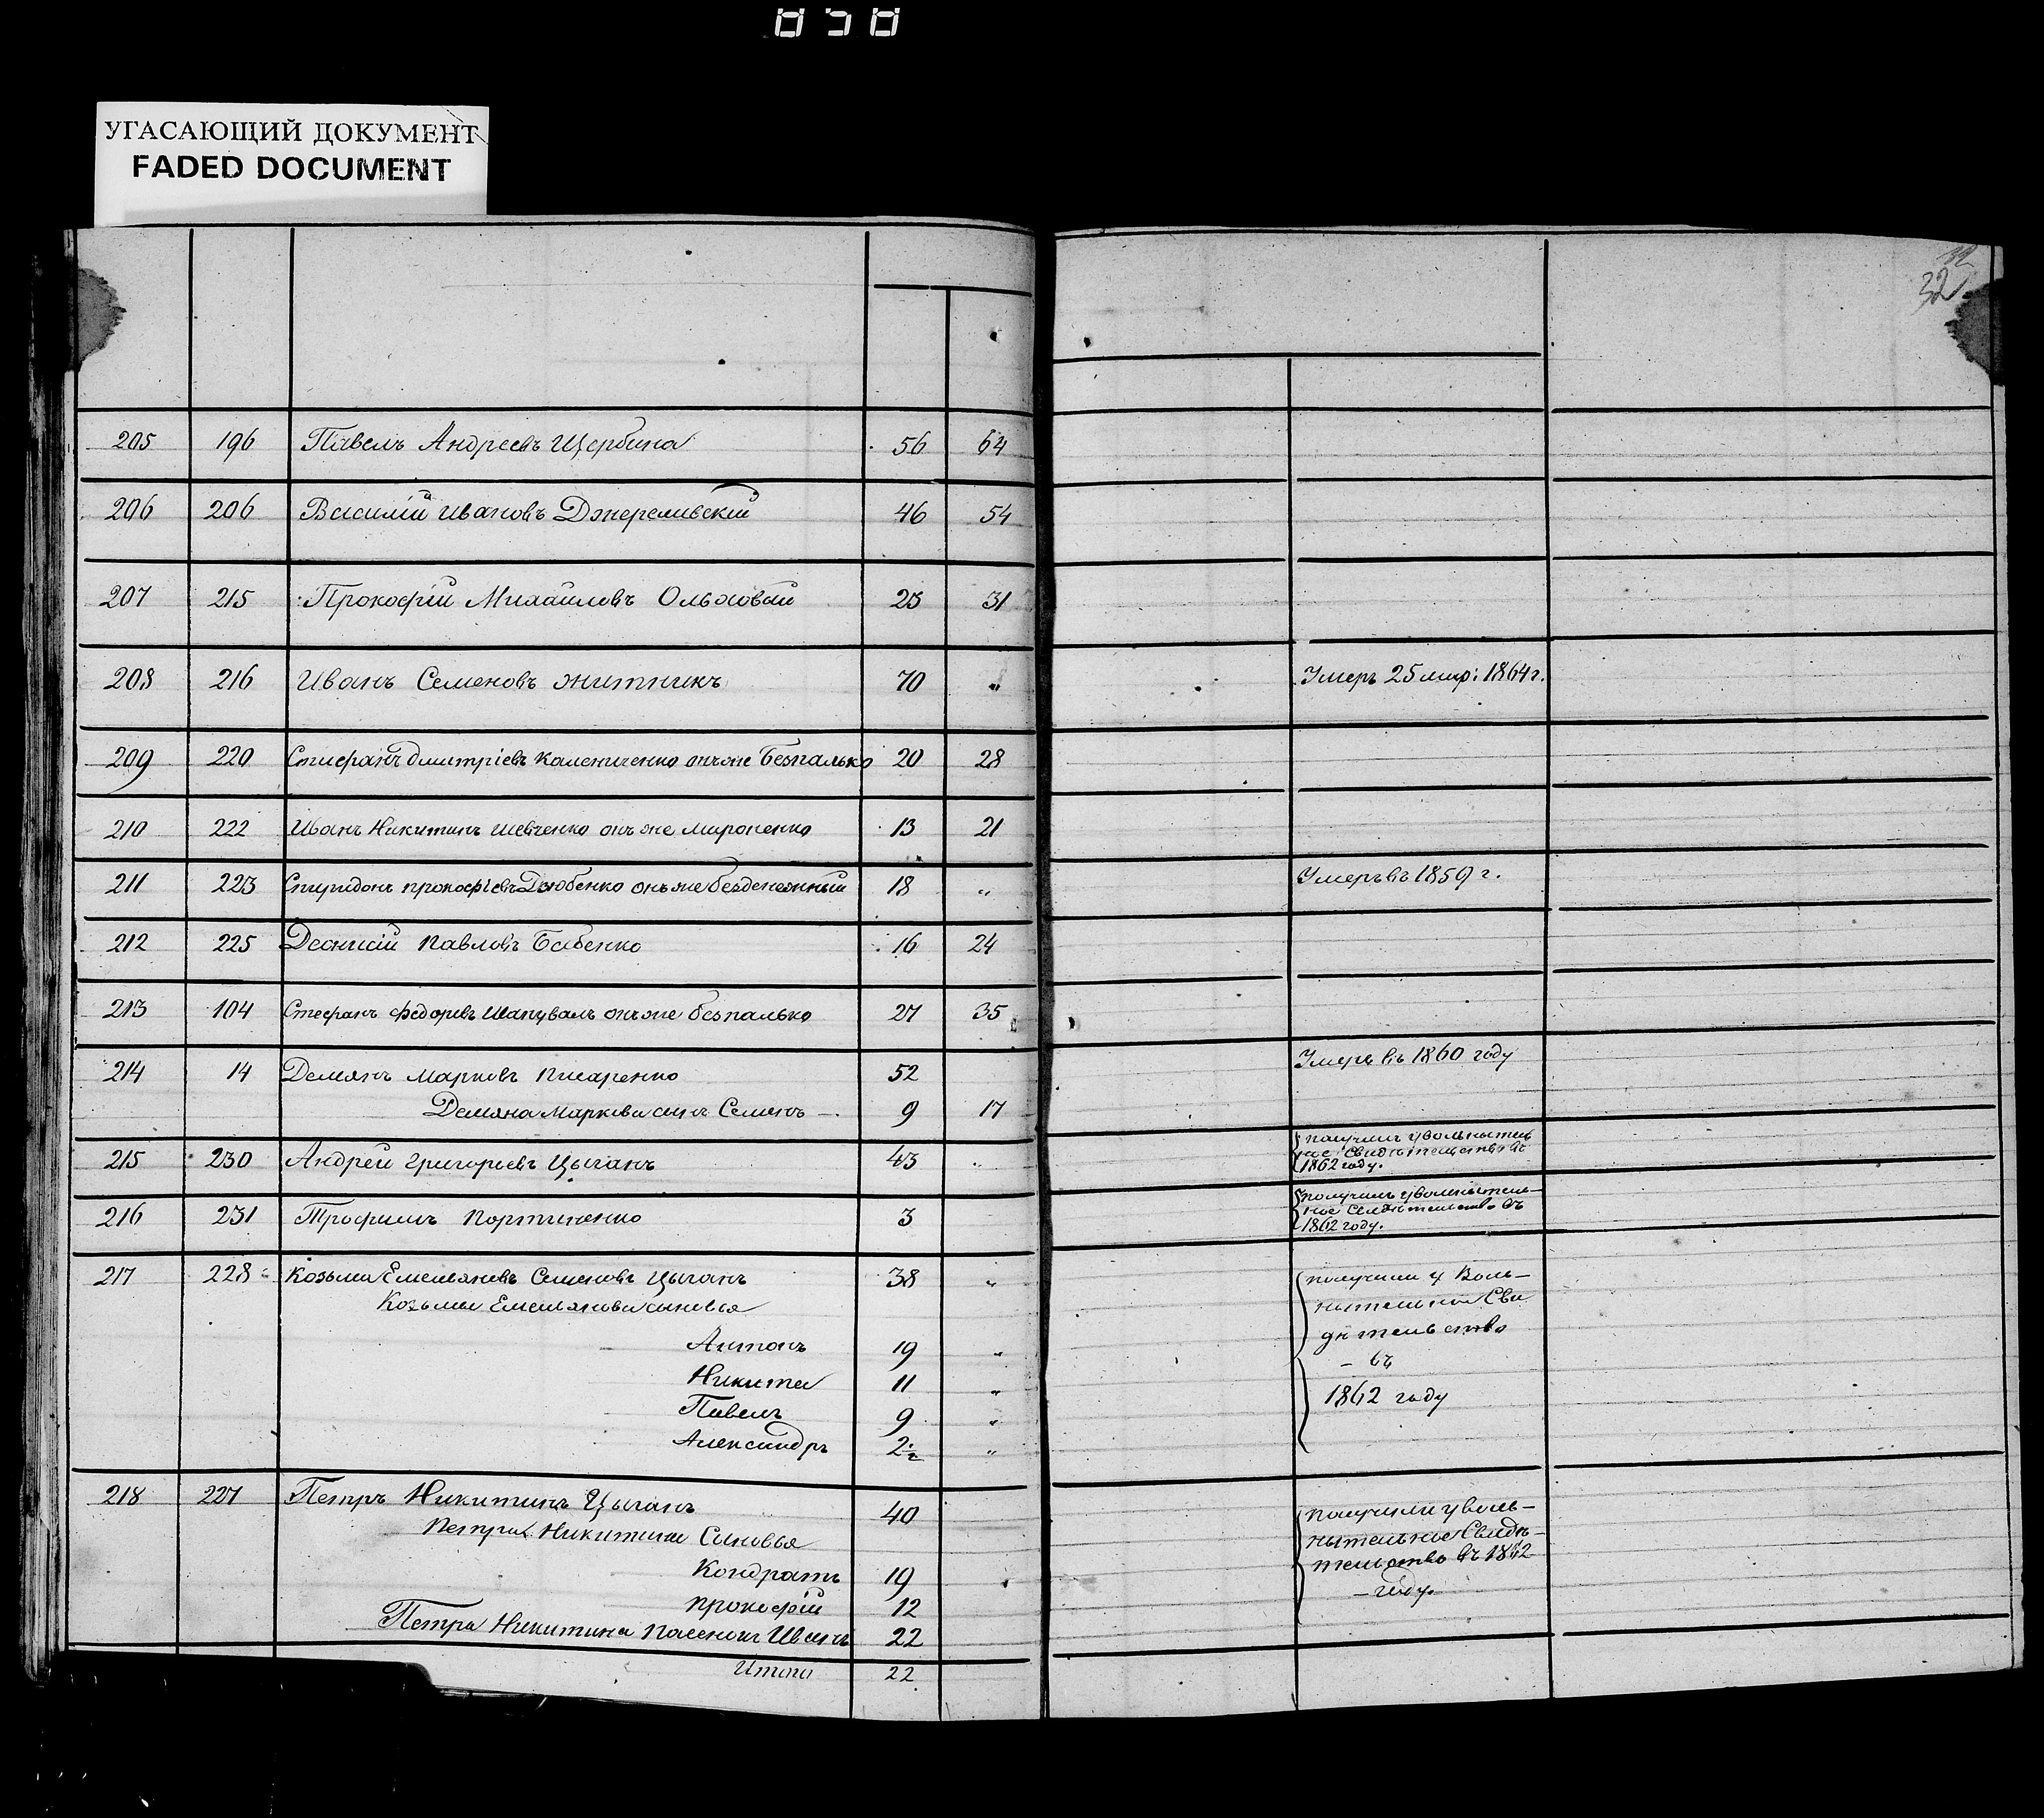 УГАСАЮЩИЙ ДОКУМЕНТ
FADED DOCUMENT
32
205 196 Павелъ Андреевъ Щербина 56 64
206 206 Василій Ивановъ Джереливскій 46 54
207 215 Прокофій Михайловъ Ольховый 23 31
208 216 Иванъ Семеновъ Житникъ 70 „ Умеръ 25 1864 г.
209 220 Стефанъ Дмитріевъ Калениченко онъ же Безпалько 20 28
210 222 Иванъ Никитинъ Шевченко онъ же Мироненко 13 21
211 223 Спиридонъ Прокофіевъ Дзюбенко онъ же Безденежный 18 „ Умеръ въ 1859 г.
212 225 Деонисій Павловъ Бабенко 16 24
213 104 Стефанъ Федоровъ Шаповалъ онъ же Безпалько 27 35
214 14 Демянъ Марковъ Писаренко 52 Умеръ въ 1860 году
Демяна Маркова сынъ Семенъ — 9 17
215 230 Андрей Григорьевъ Цыганъ 43 „ получилъ увольнитель
ное свидѣтельство въ
1862 году.
216 231 Трофимъ 3 получилъ увольнитель-
ное свидѣтельство въ
1862 году.
217 228 Козьма Емельяновъ Семеновъ Цыганъ 38 „ получили уволь-
Козьмы Емельянова сыновья нительное сви
Антонъ 19 „ дѣтельство
Никита 11 „ — въ
Павелъ 9 „ 1862 году
Александръ 2½ „
218 227 Петръ Никитинъ Цыганъ 40 получили уволь-
Петра Никитина сыновья нительное свидѣ-
Кондратъ 19 тельство въ 1862
Прокофій 12 — году.
Петра Никитина пасенокъ Иванъ 22
Итого 22